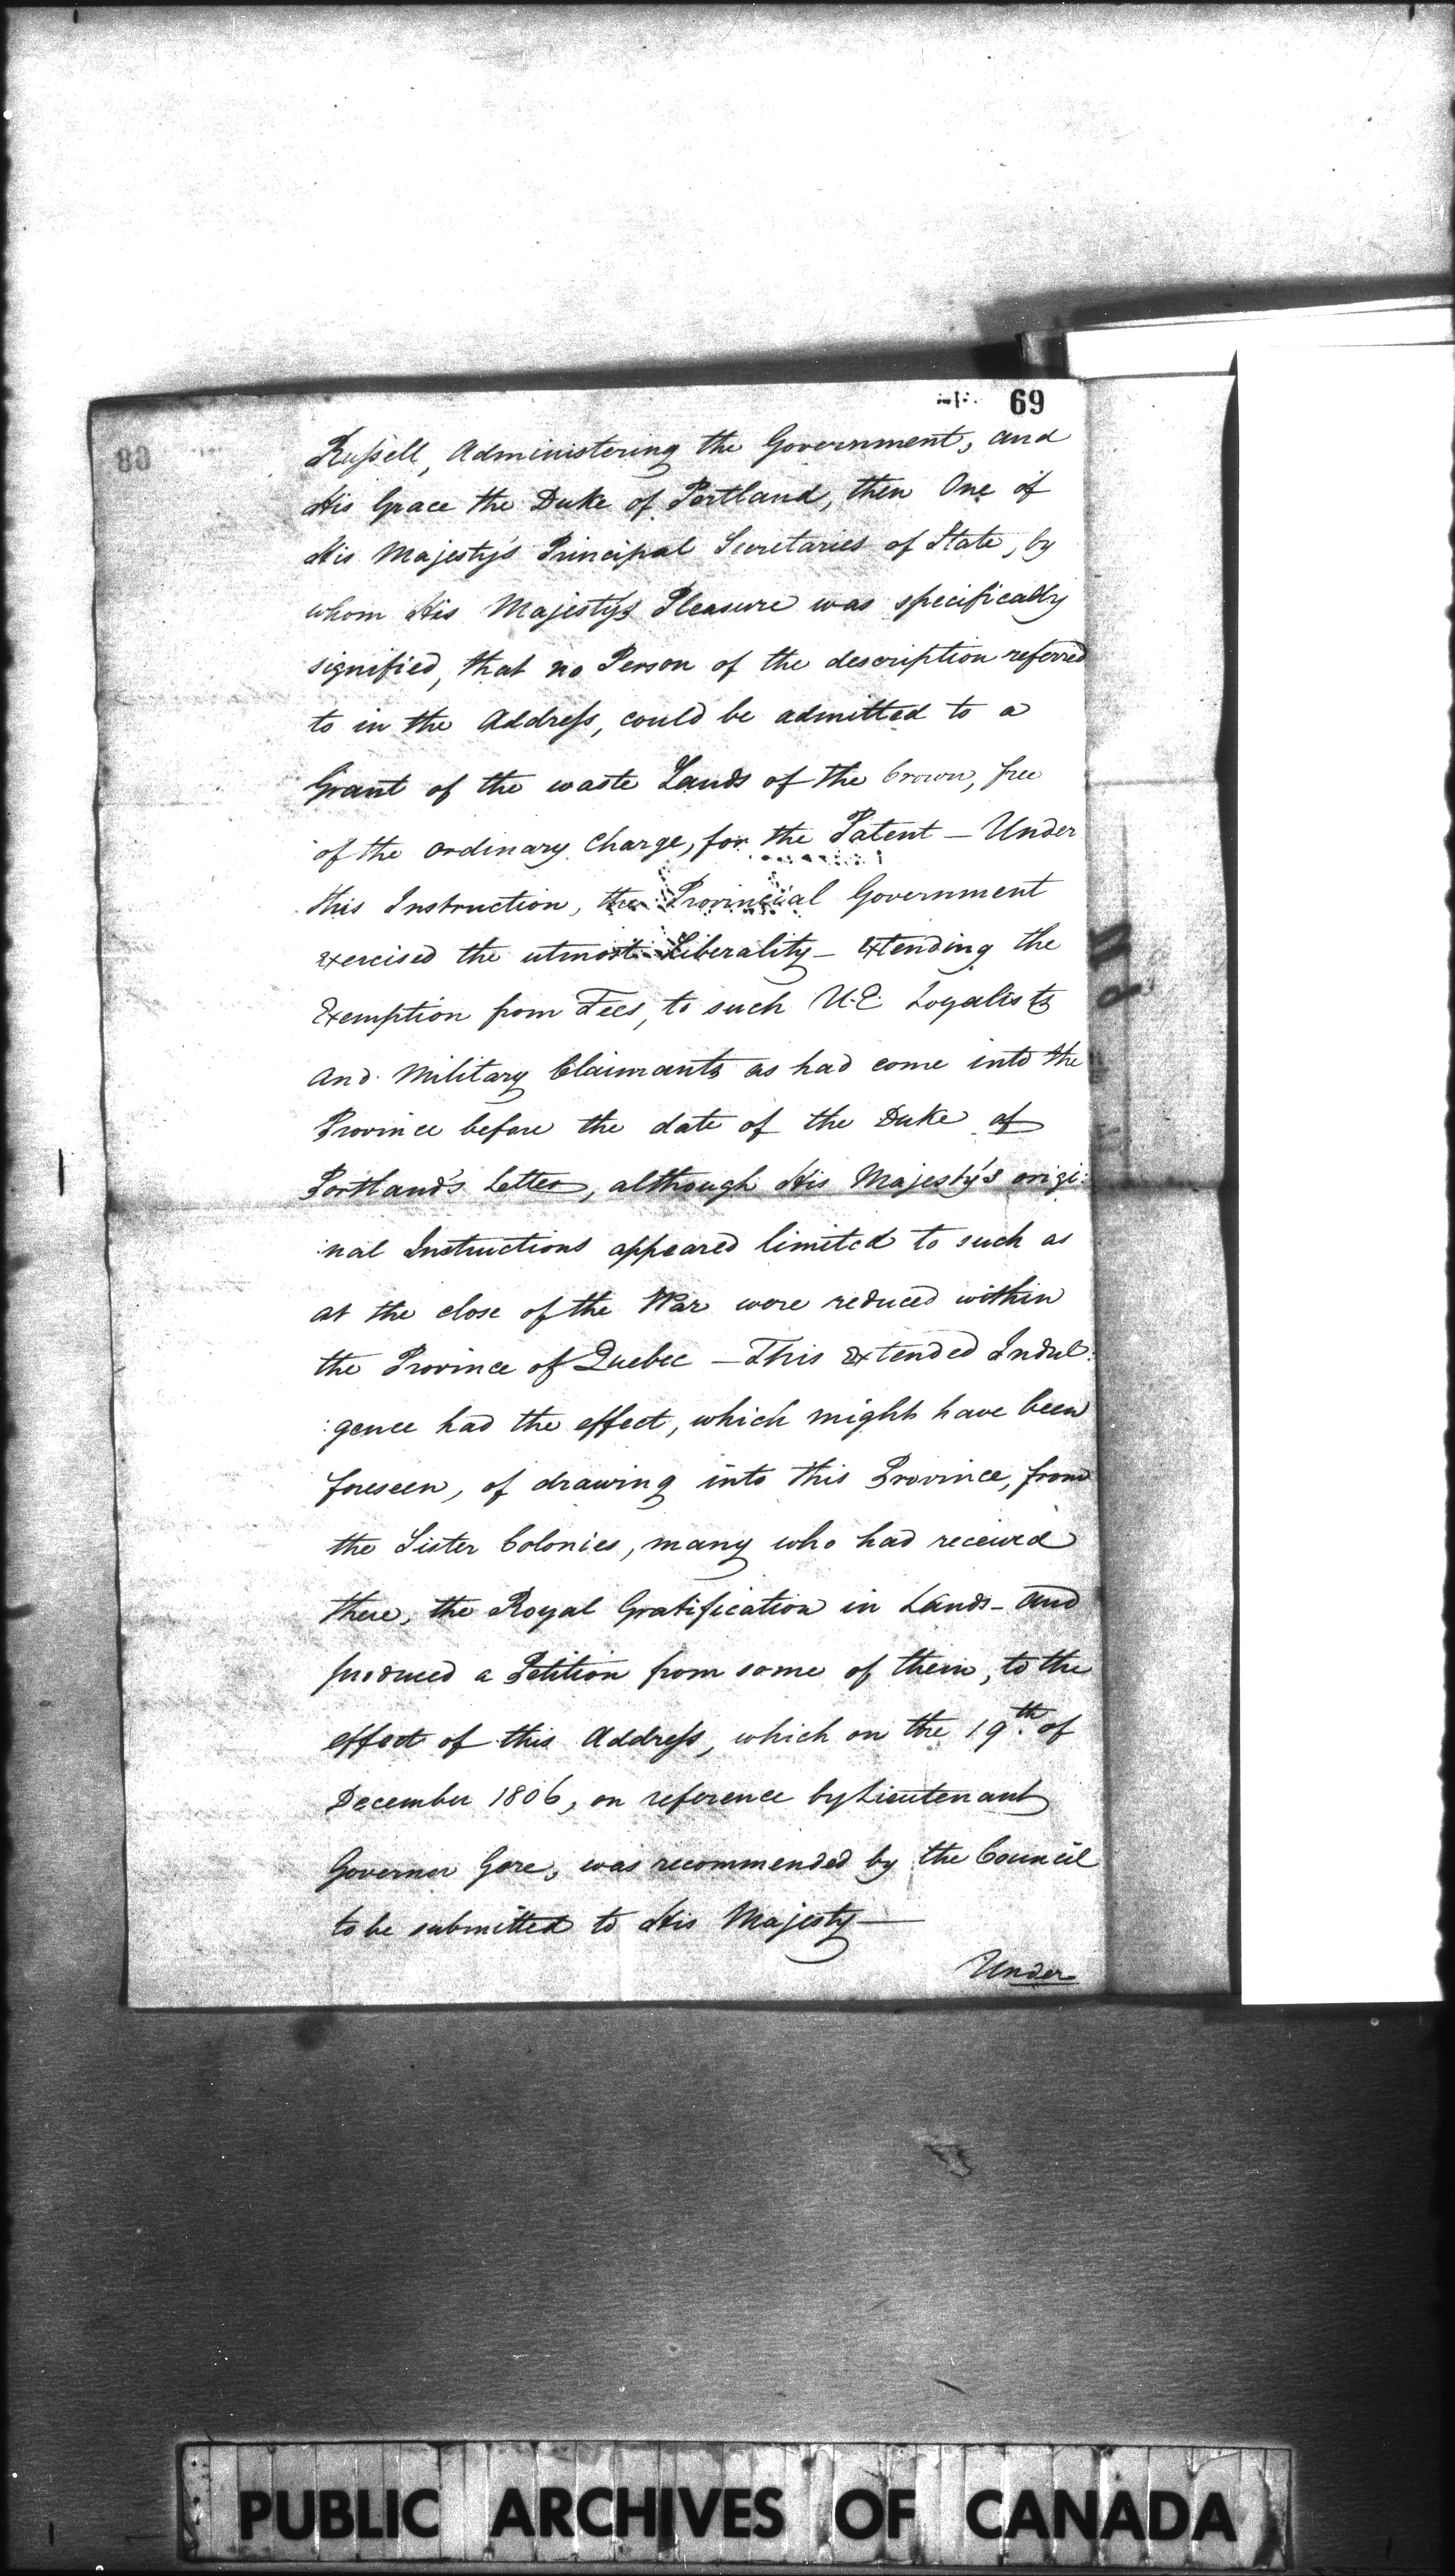 69
Rufsell, Administering the Government, and
His Grace the Duke of Portland, then One of
His Majesty's Principal Secretaries of State, by
whom His Majesty's Pleasure was specifically
signified, that no Person of the description referred
to in the Addrefs, could be admitted to a
Grant of the waste Lands of the Crown, free
of the ordinary Charge, for the Patent — Under
this Instruction, the Provincial Government
exercised the utmost Liberality — extending the
Exemption from Fees, to such U.E. Loyalists
and Military Claimants as had come into the
Province before the date of the Duke of
Portland's Letter, although His Majesty's origi:
:nal Instructions appeared limited to such as
at the close of the War were reduced within
the Province of Quebec — This extended Indul:
:gence had the effect, which might have been
foreseen, of drawing into this Province, from
the Sister Colonies, many who had received
there, the Royal Gratification in Lands — and
produced a Petition from some of them, to the
effect of this Addrefs, which on the 19th. of
December 1806, on reference by Lieutenant
Governor Gore, was recommended by the Council
to be submitted to His Majesty —
Under
PUBLIC ARCHIVES OF CANADA